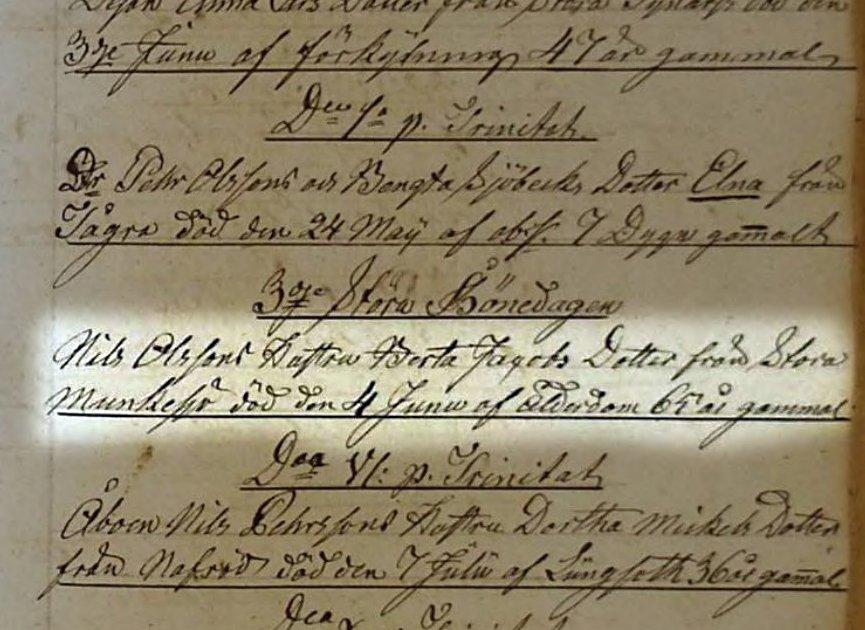 Anna Lars Dotter från Stora död den
3je Junii af förkylning 47 år gammal
Den p. Trinitat.
Dr Pehr Olssons och Bengta Sjöbecks Dotter Elna från
Tågra död den 24 Maij af obs. 7 Dygn gam̄alt
3dje Stora Bönedagen
Nils Olssons Hustru Berta Jacobs Dotter från Stora
Munkesjö död den 4 Junii af Ålderdom 65 år gammal
VI: p. Trinitat
Åboen Nils Pehrssons Hustru Dortha Mickels Dotter
från död den 7 Julii af Lungsoth 36 år gam̄al